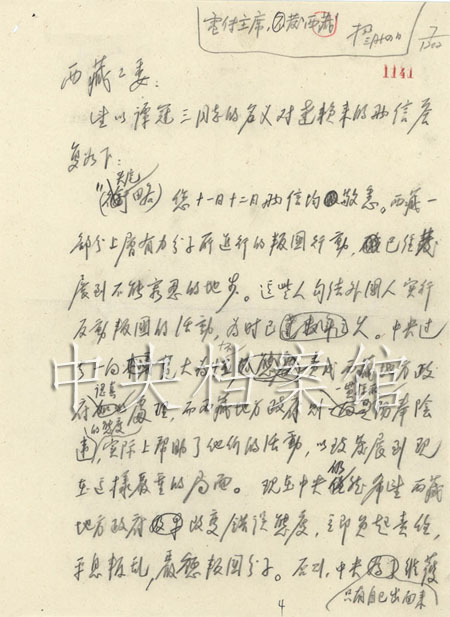 电传主席，②发西藏
1141
西藏工委：
望以谭冠三同志的名义对达赖来的两信答
复如下：
头尾
"（略）您十一日十二日两信均敬悉。西藏一
部分上层有力分子所进行的叛国行动，已经发
展到不能容忍的地步。这些人勾结外国人实行
反动叛国的活动，为时已
中央过
去一向宽大为怀，责成西藏地方政
府
认真
处理，而西藏地方政府则一贯
阳奉阴
的态度
违，实际上帮助了他们的活动，以致发展到现
在这样严重的局面。现在中央仍然希望西藏
地方政府改变错误态度，立即负起责任，
平息叛乱，严惩叛国分子。否则，中央
只有自己出面来
维护
4
中央档案馆